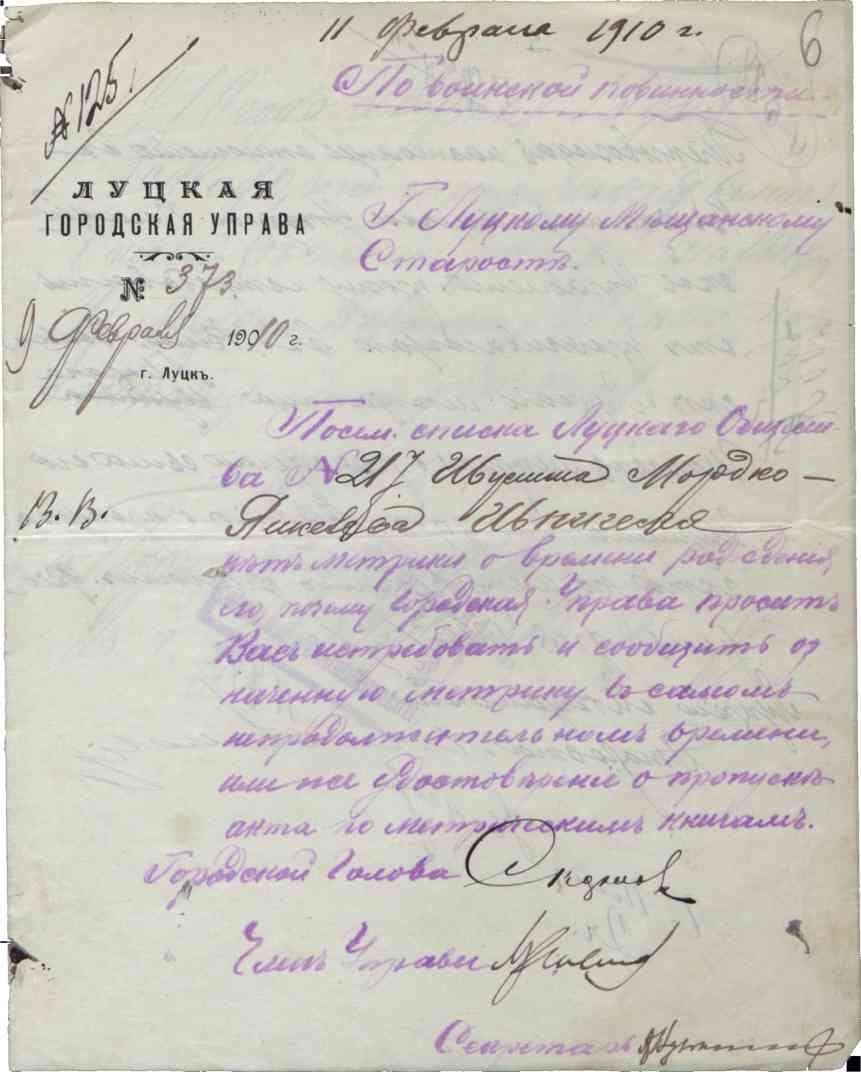 11 Февраля 1910 г.
6
По воинской повинности
№ 125.
ЛУЦКАЯ
ГОРОДСКАЯ УПРАВА
№ 373.
9 Февраля 1910 г.
г. Луцкъ.
Г. Луцкому Мѣщанскому
Старостѣ.
Посем. списка Луцкаго Общест-
ва № 217 Мордко –
В. В.
нѣтъ метрики о времени рождения
его, почему Городская Управа проситъ
Васъ истребовать и сообщить оз
наченную метрику въ самомъ
непродолжительномъ времени,
или же удостовѣрение о пропускѣ
акта по метрическимъ книгамъ.
Городской Голова
Членъ Управы
Секретарь